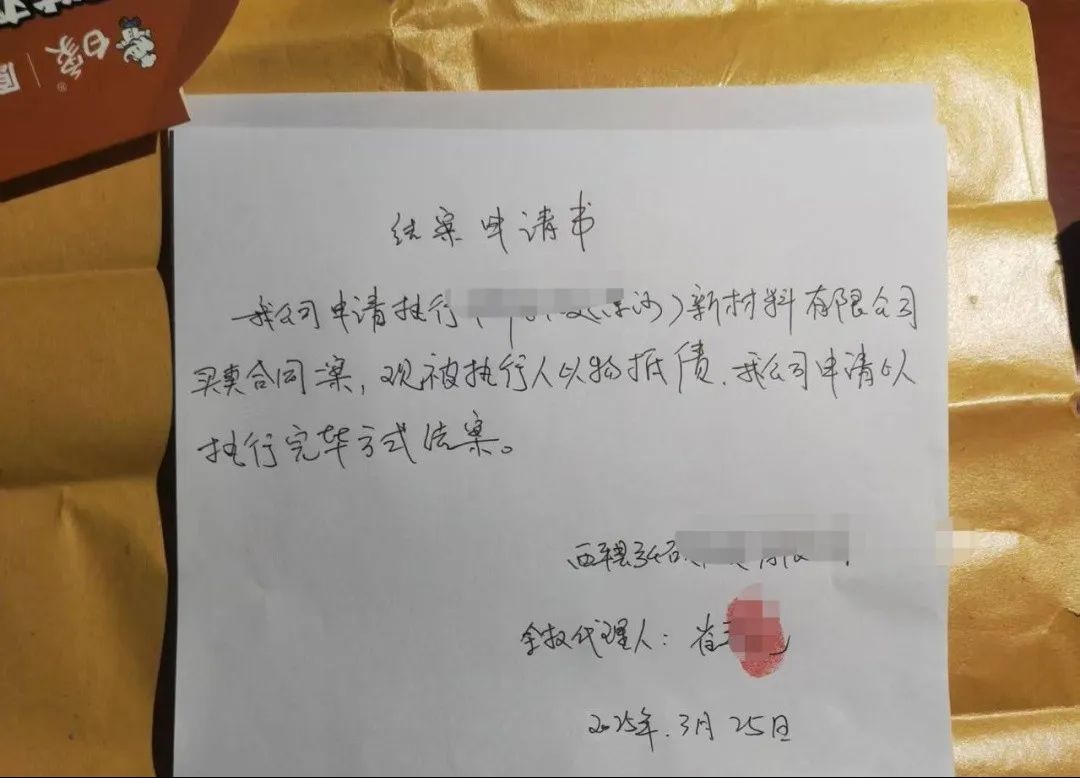 白家
结案申请书
我公司申请执行 新材料有限公司
买卖合同案，现被执行人以物抵债，我公司申请以
执行完毕方式结案。
西平县
全权代理人：崔
2025年3月25日